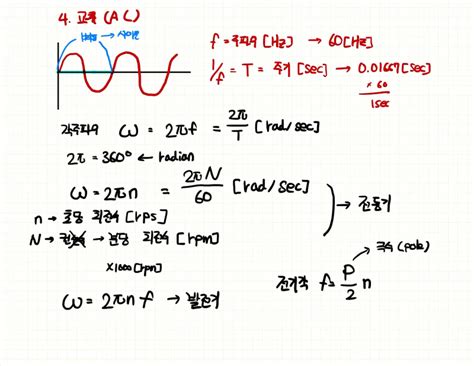 4. 교류 (AC)
→ 사이클
f = 주파수 [Hz] → 60[Hz]
1/f = T = 주기 [sec] → 0.01667[sec]
× 60
1sec
각주파수 ω = 2πf = 2π/T [rad/sec]
2π = 360° ← radian
ω = 2πn = 2πN/60 [rad/sec]
→ 전동기
n → 초당 회전수 [rps]
N → 분당 회전수 [rpm]
×1000 [rpm]
극수 (pole)
ω = 2πn f → 발전기
전기각 f = P/2 n